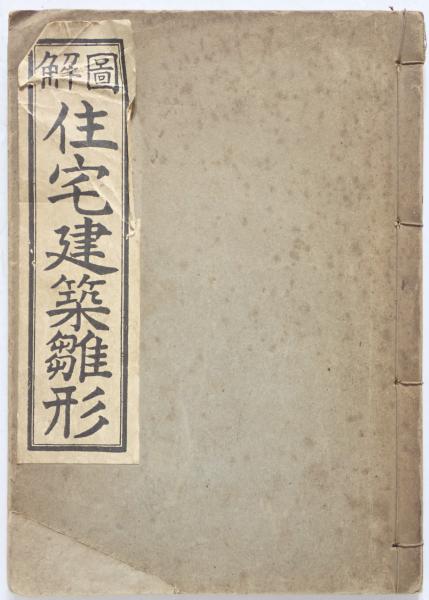 圖解
住宅建築雛形